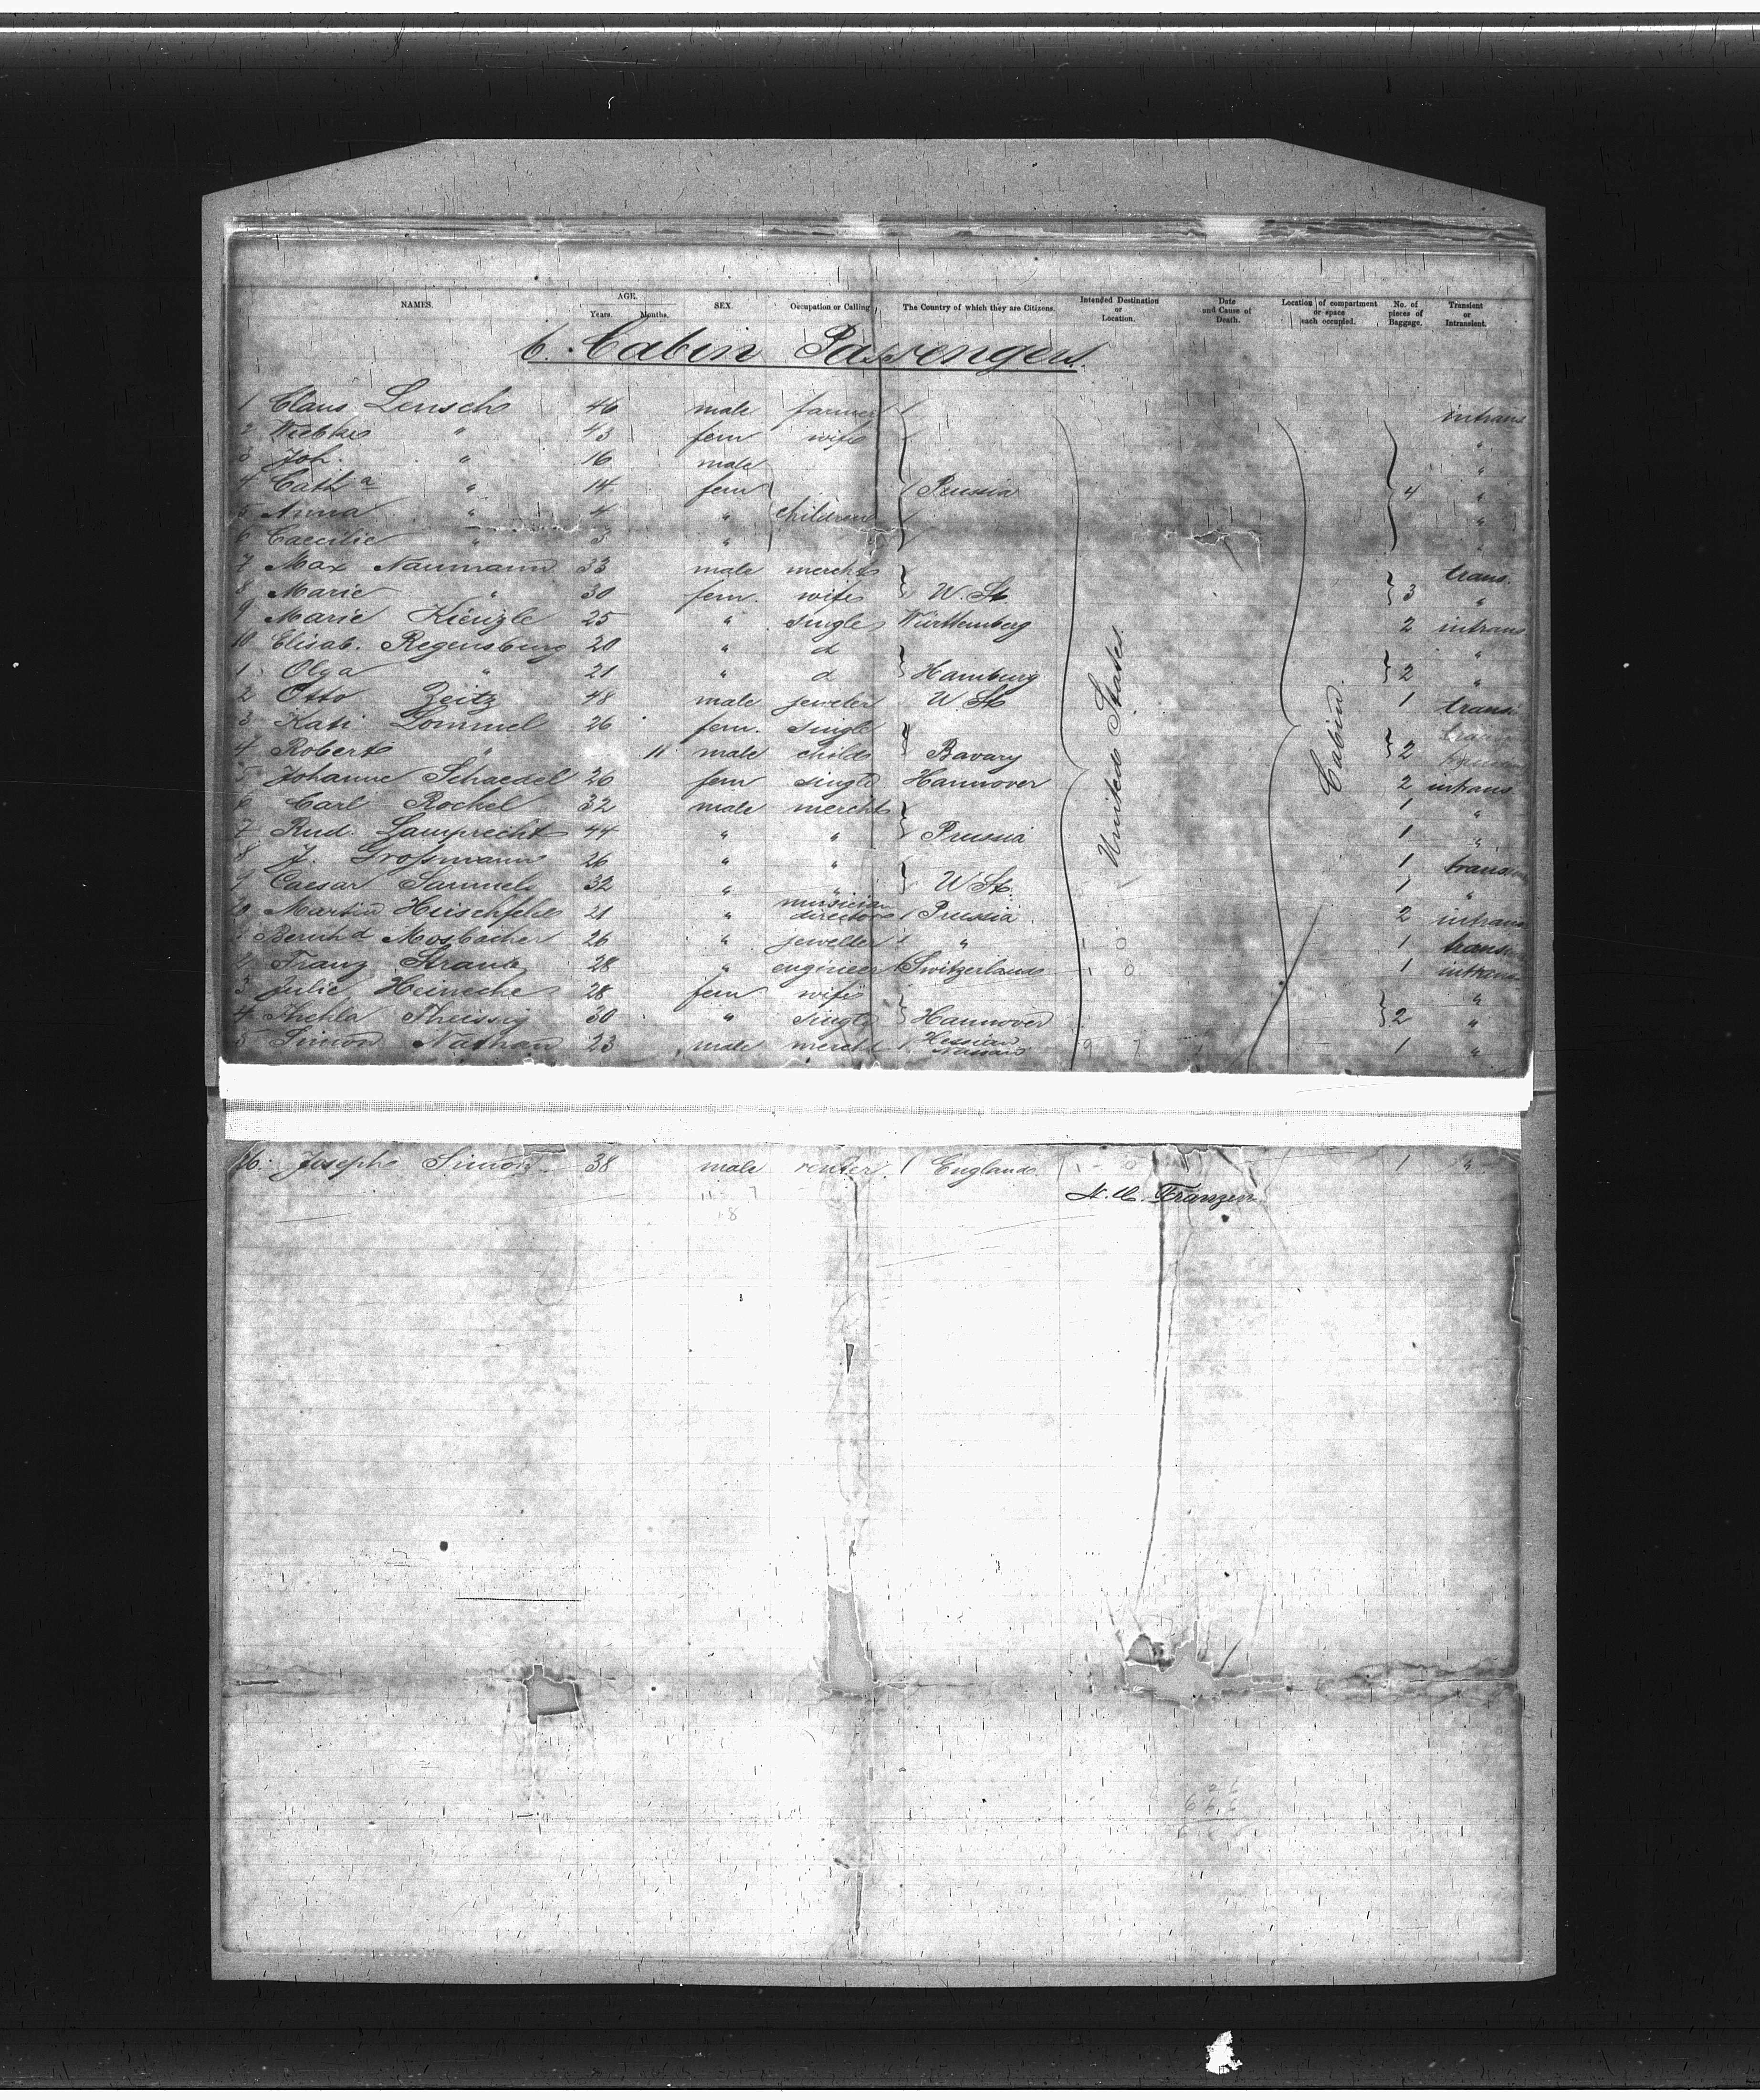 NAMES. AGE. Years. Months. SEX. Occupation or Calling The Country of which they are Citizens. Intended Destination or Location. Date and Cause of Death. Location of compartment or space each occupied. No. of pieces of Baggage. Transient or Intransient.
b. Cabin Passengers.
1 Claus Lensch 46 male farmer intrans
2 Wiebke " 43 fem wife "
3 Joh. " 16 male "
4 Cath a " 14 fem Prussia 4 "
5 Anna " 4 " children "
6 Caecilie " 3 " "
7 Max Naumann 33 male mercht trans.
8 Marie " 30 fem. wife U. St. 3 "
9 Marie Kienzle 25 " single Württemberg 2 intrans
10 Elisab. Regensburg 20 " d "
1 Olga " 21 " d Hamburg 2 "
2 Otto Zeitz 48 male jeweler U. St. 1 trans
3 Kati Lommel 26 fem. single
4 Robert " 11 male child Bavary 2
5 Johanne Schaedel 20 fem single Hannover 2 intrans
6 Carl Rochel 32 male mercht 1 "
7 Rud. Lamprecht 44 " " Prussia 1 "
8 J. Großmann 26 " " 1 trans
9 Caesar Samuels 32 " " U St. 1 "
20 Martin Hirschfeld 21 " musician director Prussia 2 intrans
1 Bernhd Mosbacher 26 " jeweller " 1 trans
2 Franz Straub 28 " engineer Switzerland 1 intrans
3 Julie Heinecke 28 fem wife "
4 Thekla Theissig 30 " single Hannover 2 "
5 Simon Nathan 23 male mercht Hessian Nassau 1 "
United States.
Cabin.
26. Joseph Simon 38 male renter England 1 "
Franzen